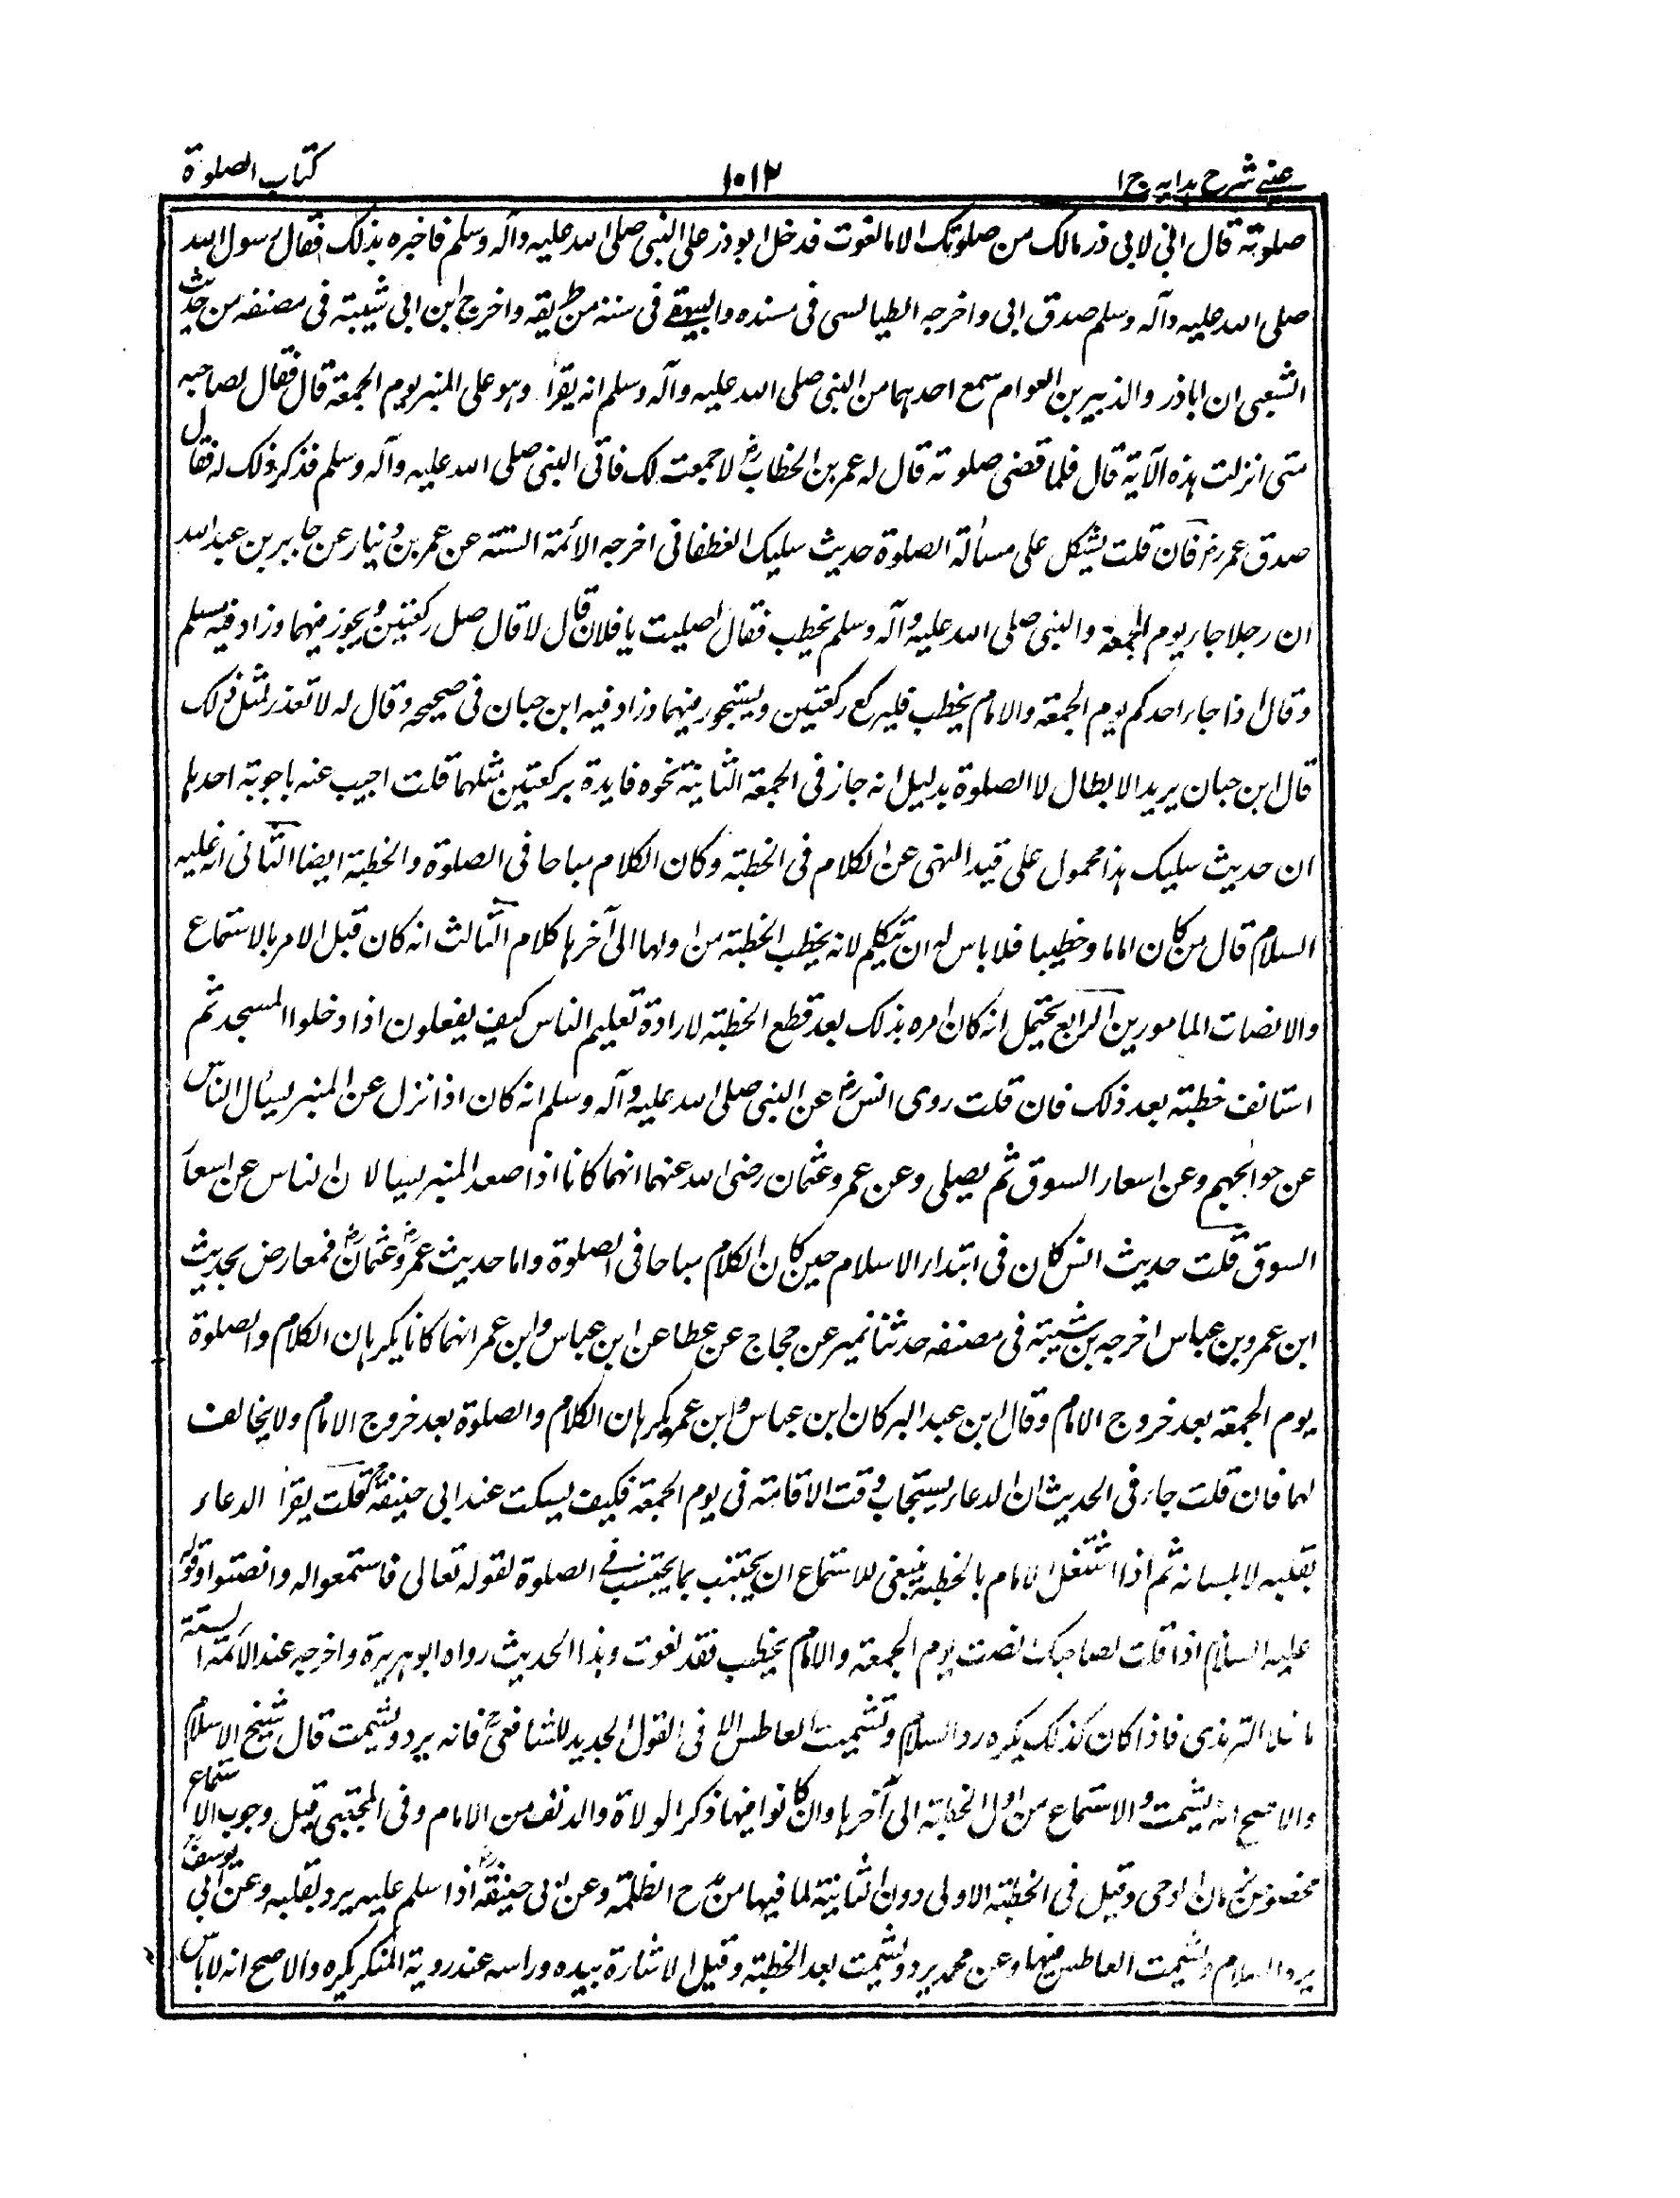 عینے شرح ہدایہ ج ١
١٠١٢
کتاب الصلوة
صلوتہ قال ابی لابی ذر مالک من صلوتک الا ما لغوت فدخل ابو ذر علی النبی صلی اللہ علیہ وآلہ وسلم فاخبرہ بذلک فقال رسول اللہ
صلی اللہ علیہ وآلہ وسلم صدق ابی واخرجہ الطیالسی فی مسندہ والبیہقے فی سننہ من طریقہ واخرج ابن ابی شیبتہ فی مصنفہ من حدیث
الشعبی ان اباذر والذبیر بن العوام سمع احدہما من النبی صلی اللہ علیہ وآلہ وسلم انہ یقرأ وہو علی المنبر یوم الجمعتہ قال فقال لصاحبہ
متی انزلت ہذہ الآیتہ قال فلما قضی صلوتہ قال لہ عمر بن الخطاب رض لا جمعت لک فاتی النبی صلی اللہ علیہ وآلہ وسلم فذکر ذلک لہ فقال
صدق عمر رض فان قلت یشکل علی مسألة الصلوة حدیث سلیک الغطفانی اخرجہ الأئمة الستتہ عن عمر بن دینار عن جابیر بن عبداللہ
ان رجلا جاء یوم الجمعة والنبی صلی اللہ علیہ وآلہ وسلم یخطب فقال اصلیت یا فلان قال لا قال صل رکعتین ویجوز فیہما وزاد فیہ مسلم
وقال اذا جاء احدکم یوم الجمعتہ والامام یخطب فلیرکع رکعتین ویستجور فیہما وزاد فیہ ابن حبان فی صحیحہ وقال لہ لا تعذر لمثل ذلک
قال ابن حبان یرید الابطال لا الصلوة بدلیل انہ جاز فی الجمعة الثانیتہ نحوہ فایدة برکعتین مثلہما قلت اجیب عنہ باجوبة احدہا
ان حدیث سلیک ہذا محمول علی قید النہی عن الکلام فی الخطبتہ وکان الکلام مباحا فی الصلوة والخطبة ایضا الثانی انہ علیہ
السلام قال من کان اماما وخطیبا فلا باس لہ ان یتکلم لانہ یخطب الخطبتہ من اولہا الی آخرہا کلام الثالث انہ کان قبل الامر بالاستماع
والانصات المامورین الرابع یحتمل انہ کان امرہ بذلک بعد قطع الخطبتہ لارادة تعلیم الناس کیف یفعلون اذا دخلوا المسجد ثم
استانف خطبتہ بعد ذلک فان قلت روی انس رض عن النبی صلی اللہ علیہ وآلہ وسلم انہ کان اذا نزل عن المنبر یسأل الناس
عن حوایجہم وعن اسعار السوق ثم یصلی وعن عمر وعثمان رضی اللہ عنہما انہما کانا اذا صعد المنبر یسالان الناس عن اسعار
السوق قلت حدیث انس کان فی ابتداء الاسلام حین کان الکلام مباحا فی الصلوة واما حدیث عمر رض وعثمان رض فمعارض بحدیث
ابن عمر وبن عباس اخرجہ بن شیبتہ فی مصنفہ حدثنا نمیر عن حجاج عن عطا عن ابن عباس وابن عمر انہما کانا یکرہان الکلام والصلوة
یوم الجمعتہ بعد خروج الامام وقال بن عبد البر کان ابن عباس وابن عمر یکرہان الکلام والصلوة بعد خروج الامام ولا یخالف
لہما فان قلت جاء فی الحدیث ان الدعاء یستجاب وقت الاقامتہ فی یوم الجمعتہ فکیف یسکت عند ابی حنیفة قلت یقرأ الدعاء
بقلبہ لا بلسانہ ثم اذا اشتغل الامام بالخطبة ینبغی للاستماع ان یجتنب بما یجتنب فی الصلوة لقولہ تعالی فاستمعوا لہ وانصتوا وقولہ
علیہ السلام اذا قلت لصاحبک انصت یوم الجمعتہ والامام یخطب فقد لغوت وہذا الحدیث رواہ ابو ہریرة واخرجہ عند الأئمة الستتہ
ما خلا الترمذی فاذا کان کذلک یکرہ رد السلام وتشمیت العاطس الا فی القول الجدید للشافعی فانہ یرد ویشمت قال شیخ الاسلام
والاصح انہ یشمت والاستماع من اول الخطبتہ الی آخرہا وان کانوا فیہا ذکر الولاة والدنف من الامام وفی المجتبی قیل وجوب الاستماع
مخصوص بزمان الوحی وقیل فی الخطبتہ الاولی دون الثانیتہ لما فیہا من مدح الظلمتہ وعن ابی حنیفة اذا سلم علیہ یرد بقلبہ وعن ابی یوسف
یرد السلام ویشمت العاطس فیہا وعن محمد یرد ویشمت بعد الخطبتہ وقیل الاشارة بیدہ وراسہ عند رویة المنکر یکرہ والاصح انہ لا باس